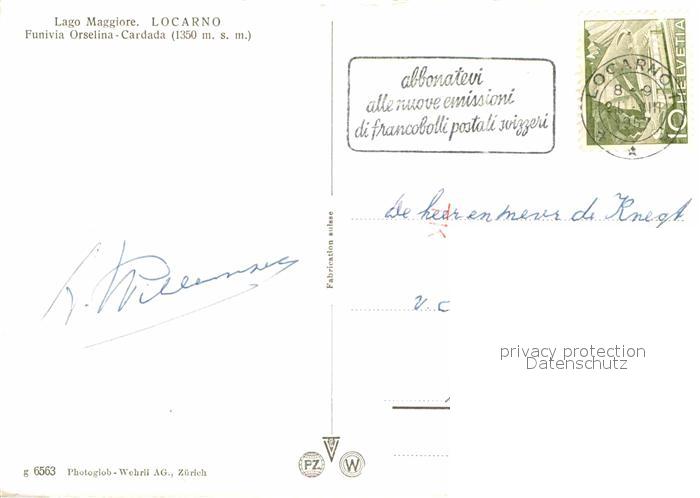 Lago Maggiore. LOCARNO
Funivia Orselina-Cardada (1350 m. s. m.)
abbonatevi
alle nuove emissioni
di francobolli postali svizzeri
HELVETIA
10
LOCARNO
8-9
De heer en mevr de Knegt
v. d
Fabrication suisse
privacy protection
Datenschutz
g 6563 Photoglob-Wehrli AG., Zürich
PZ W